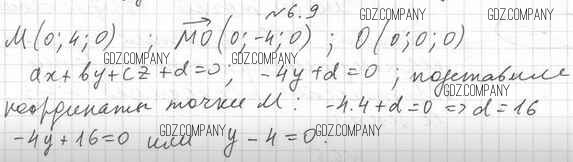 №6.9
M(0;4;0) ; MO(0;-4;0) ; O(0;0;0)
ax+by+cz+d=0; -4y+d=0 ; подставим
координаты точки M: -4·4+d=0 => d=16
-4y+16=0 или y-4=0.
GDZ.COMPANY
GDZ.COMPANY
GDZ.COMPANY
GDZ.COMPANY
GDZ.COMPANY
GDZ.COMPANY
GDZ.COMPANY
GDZ.COMPANY
GDZ.COMPANY